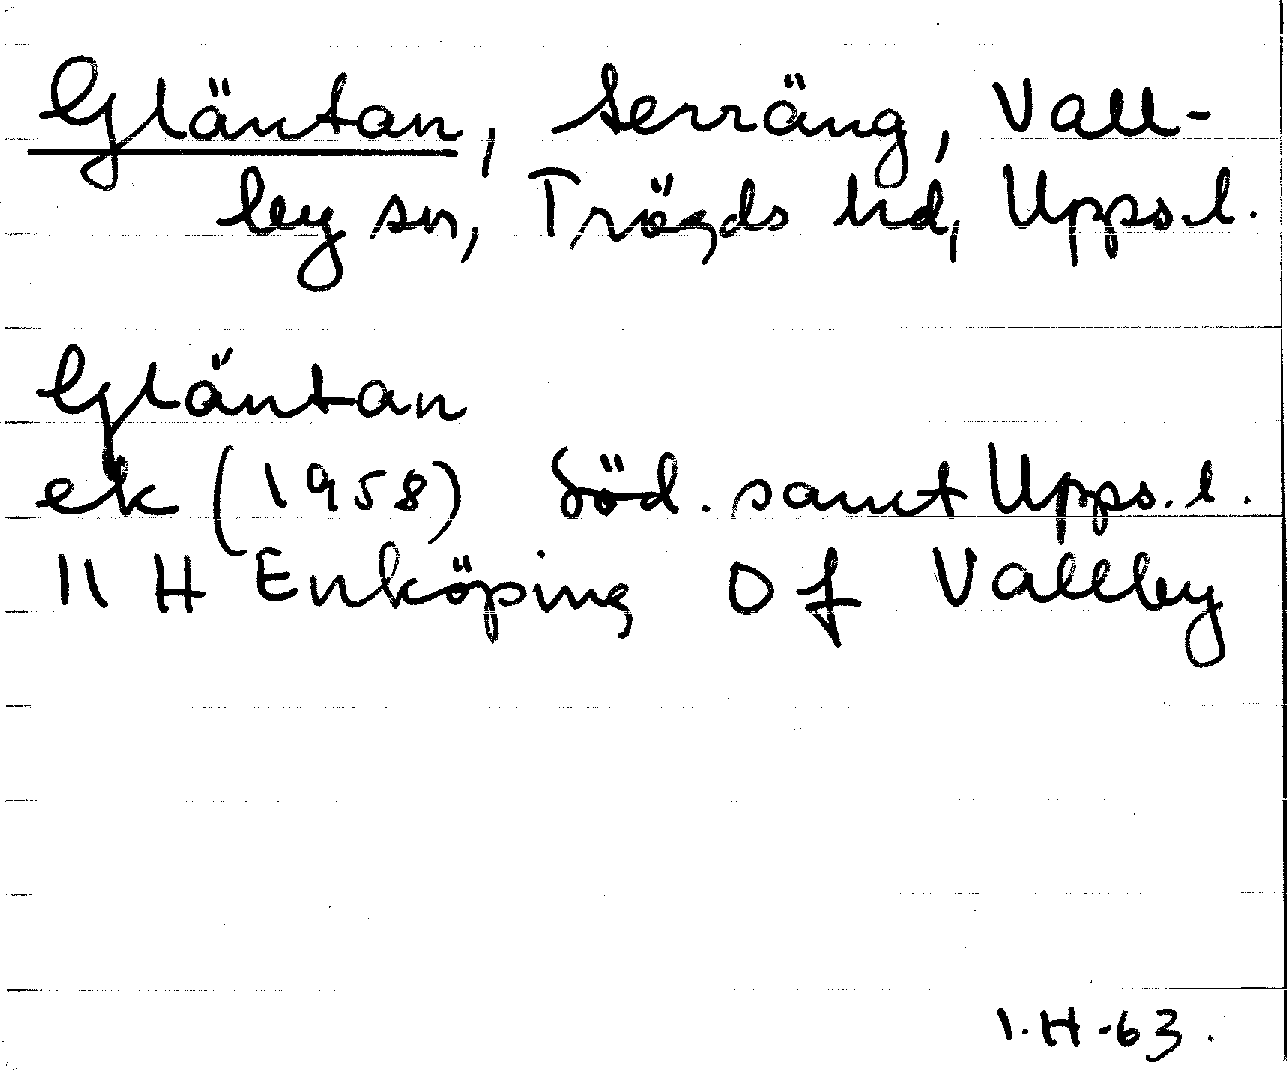 Gläntan, Serräng, Vall-
by sn, Trögds hd, Upps.l.
Gläntan
ek (1958) Söd. samt Upps. l.
11 H Enköping 0 f Vallby
1.H-63.